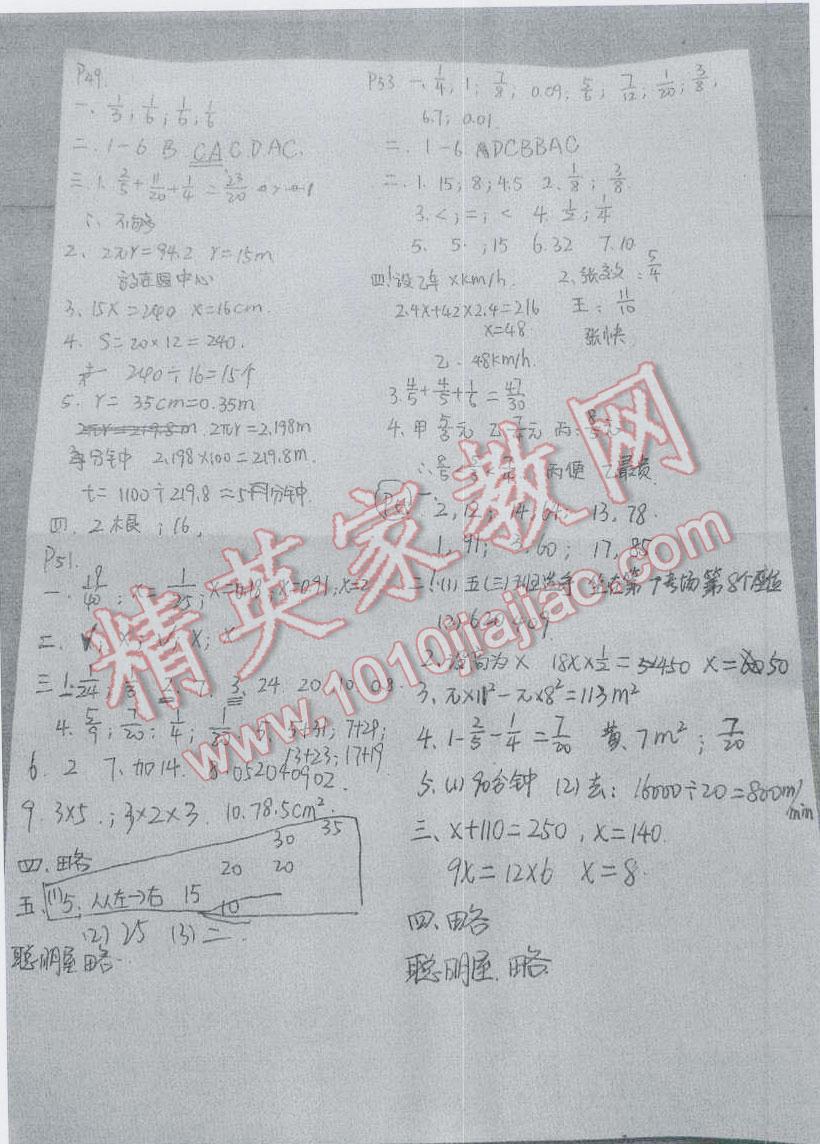 P49.
一、1/3；1/6；1/6；1/6
二.1-6 B CACDAC.
三.1. 2/5+11/20+1/4=23/20
∴ 不够
2、2πr=94.2 r=15m
放在圆中心
3、15X=240 X=16cm.
4. S=20×12=240.
240÷16=15个
5. r=35cm=0.35m
2πr=219.8m 2πr=2.198m
每分钟 2.198×100=219.8m.
t=1100÷219.8≈5 分钟.
四.2根；16,
P51.
二、
三1.
4. 5/9；7/20；1/4；
13+23；17+19
6.2 7.加14. 8.052040902.
9.3×5.；3×2×3. 10.78.5cm².
30 35
四.略 20 20
五.(1)5；从左→右 15 10
(2)25 (3)二.
聪明屋 略.
P53 一、1/4；1；7/8；0.09；5/6；7/12；1/20；3/8,
6.7；0.01
二.1-6 ADCBBAC
二.1.15；8；4.5 2.1/8；3/8.
3.<；=；< 4.1/2；1/4
5. 5.；15 6.32 7.10.
四.1设乙车xkm/h. 2、张效：5/4
2.4x+42×2.4=216 王：11/10
x=48 张快
乙.48km/h.
3. 4/5+4/5+1/6=47/30
4.甲5/3元 乙7/4元 丙：8/5元
丙便 乙最贵.
2,12；14,64；13,78.
1,91； 60；17,85
(1)五(三)班 选手 坐在第 考场第8个座位
(2)620409
2、设高为x 18x×1/2=450 x=50
3、π×11²-π×8²=113m²
4.1-2/5-1/4=7/20 黄、7m²；7/20
5.(1)90分钟 (2)去：16000÷20=800m/min
三、x+110=250，x=140.
9x=12×6 x=8.
四.略
聪明屋.略.
精英家教网
www.1010jiajiao.com